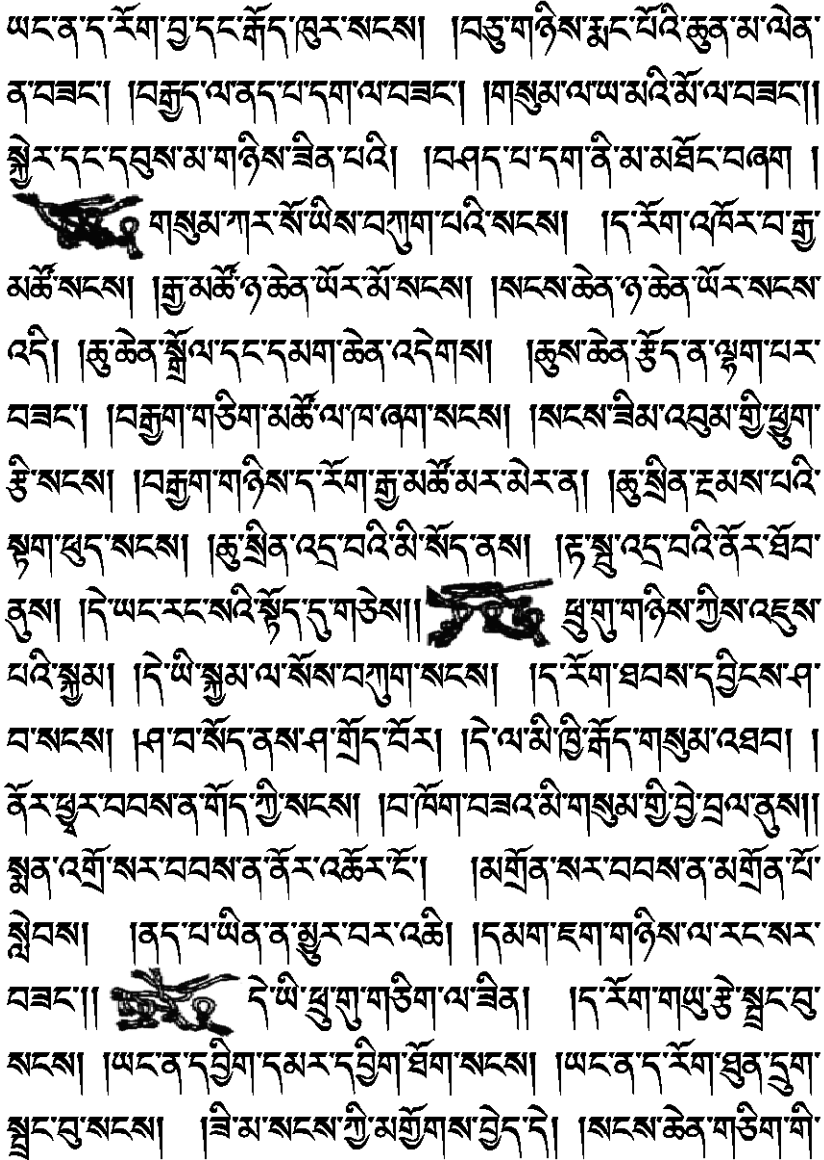 ཡང་ན་ད་རོག་བྱ་དང་རྒོད་ཁུར་སངས། །བཅུ་གཉིས་རྨང་པོའི་ཆུན་མ་ལེན་
ན་བཟང་། །བརྒྱད་ལ་ནད་པ་དག་ལ་བཟང་། །གསུམ་ལ་ཡ་མའི་མོ་ལ་བཟང་།།
སྐྱེར་དང་དབུས་མ་གཉིས་ཟིན་པའི། །བཤད་པ་དག་ནི་མ་མཐོང་བཞག །
གསུམ་ཀར་སོ་ཡིས་བཀུག་པའི་སངས། །ད་རོག་འཁོར་བ་རྒྱ་
མཚོ་སངས། །རྒྱ་མཚོ་ཉ་ཆེན་ཡོར་མོ་སངས། །སངས་ཆེན་ཉ་ཆེན་ཡོར་སངས་
འདི། །ཆུ་ཆེན་སྒྲོལ་དང་དམག་ཆེན་འདེགས། །ཆུས་ཆེན་རྩོད་ན་ལྷག་པར་
བཟང་། །བརྒྱག་གཅིག་མཚོ་ལ་ཁ་ཞག་སངས། །སངས་ཟིམ་འབུམ་གྱི་ཕྱུག་
རྩི་སངས། །བརྒྱག་གཉིས་ད་རོག་རྒྱ་མཚོ་མར་མེར་ན། །ཆུ་སྲིན་རྔམས་པའི་
སྟག་ཕུད་སངས། །ཆུ་སྲིན་འདྲ་བའི་མི་སོད་ནས། །རྟ་སྦྲུ་འདྲ་བའི་ནོར་ཐོབ་
ནུས། །དེ་ཡང་རང་སའི་སྟོད་དུ་གཅེས།། ཕྲུ་གུ་གཉིས་ཀྱིས་འཇུས་
པའི་སྐྱམ། །དེ་ཡི་སྐྱམ་ལ་སོས་བཀུག་སངས། །ད་རོག་ཐབས་དབྱིངས་ཤ་
བ་སངས། །ཤ་བ་སོད་ནས་ཤ་གྲོད་བོར། །དེ་ལ་མི་ཁྱི་རྒོད་གསུམ་འཐབ། །
ནོར་ཕྱྭར་བབས་ན་གོད་ཀྱི་སངས། །བ་ཁོག་བཟའ་མི་གསུམ་གྱི་བྱེ་བྲལ་ནུས།།
སྨན་འགྲོ་སར་བབས་ན་ནོར་འཚོར་ངོ་། །མགྲོན་སར་བབས་ན་མགྲོན་པོ་
སླེབས། །ནད་པ་ཡིན་ན་མྱུར་བར་འཆི། །དམག་ཇག་གཉིས་ལ་རང་སར་
བཟང་།། དེ་ཡི་ཕྲུ་གུ་གཅིག་ལ་ཟིན། །ད་རོག་གཡུ་རྩེ་སྦྲང་བུ་
སངས། །ཡང་ན་དབྱིག་དམར་དབྱིག་ཐོག་སངས། །ཡང་ན་ད་རོག་ཐུན་དྲུག་
སྦྲང་བུ་སངས། །ཟི་མ་སངས་ཀྱི་མགྱོགས་བྱེད་དེ། །སངས་ཆེན་གཅིག་གི་